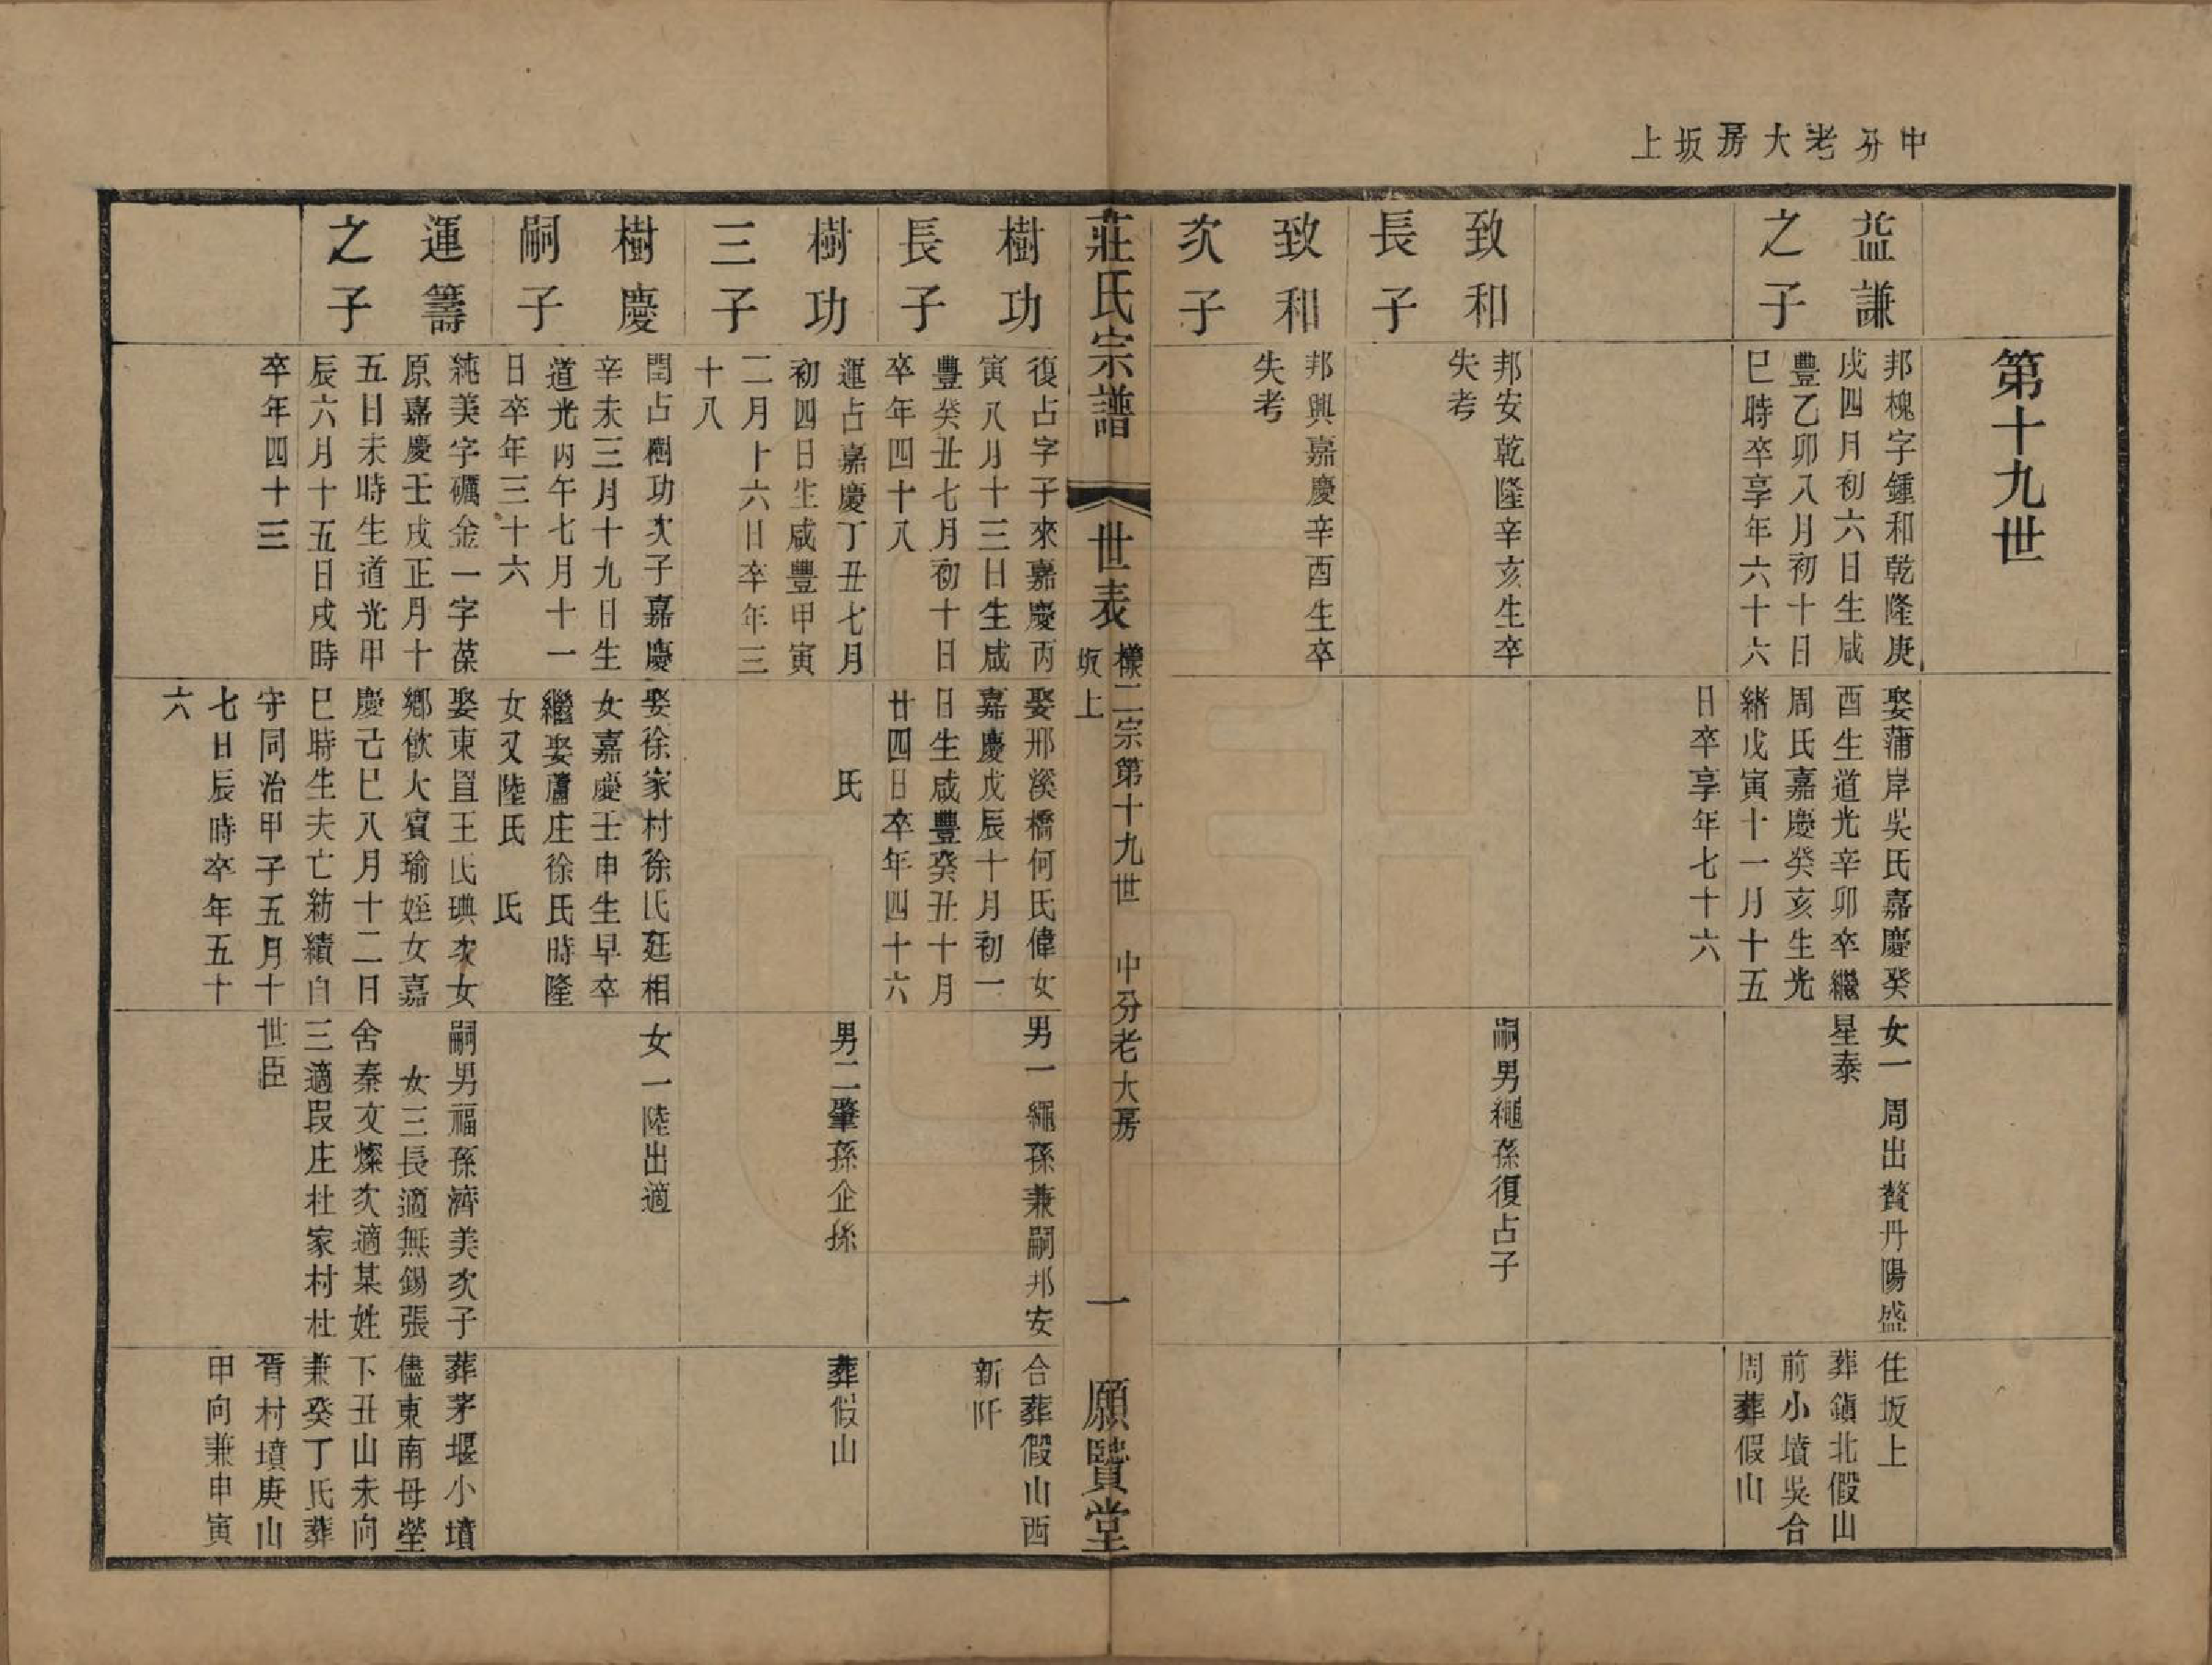 中分老大房坂上
第十九世
益謙
之子
邦槐字鍾和乾隆庚
戌四月初六日生咸
豐乙卯八月初十日
巳時卒享年六十六
娶蒲岸吳氏嘉慶癸
酉生道光辛卯卒繼
周氏嘉慶癸亥生光
緒戊寅十一月十五
日卒享年七十六
女一周出贅丹陽盛
星泰
住坂上
葬鎮北假山
前小墳吳合
周葬假山
致和
長子
邦安乾隆辛亥生卒
失考
嗣男繩孫復占子
致和
次子
邦興嘉慶辛酉生卒
失考
莊氏宗譜
世表
樣二宗第十九世 中分老大房
坂上
一
願賢堂
樹功
長子
復占字子來嘉慶丙
寅八月十三日生咸
豐癸丑七月初十日
卒年四十八
娶邢溪橋何氏偉女
嘉慶戊辰十月初一
日生咸豐癸丑十月
廿四日卒年四十六
男一繩孫兼嗣邦安
合葬假山西
新阡
樹功
三子
運占嘉慶丁丑七月
初四日生咸豐甲寅
二月十六日卒年三
十八
氏
男二肇孫企孫
葬假山
樹慶
嗣子
閏占樹功次子嘉慶
辛未三月十九日生
道光丙午七月十一
日卒年三十六
娶徐家村徐氏廷相
女嘉慶壬申生早卒
繼娶蘆庄徐氏時隆
女又陸氏 氏
女一陸出適
運籌
之子
純美字礪金一字葆
原嘉慶壬戌正月十
五日未時生道光甲
辰六月十五日戌時
卒年四十三
娶東罝王氏琠次女
鄉飲大賓瑜姪女嘉
慶己巳八月十二日
巳時生夫亡紡績自
守同治甲子五月十
七日辰時卒年五十
六
嗣男福孫濟美次子
女三長適無錫張
舍秦文燦次適某姓
三適段庄杜家村杜
世臣
葬茅堰小墳
儘東南母塋
下丑山未向
兼癸丁氏葬
胥村墳庚山
甲向兼申寅